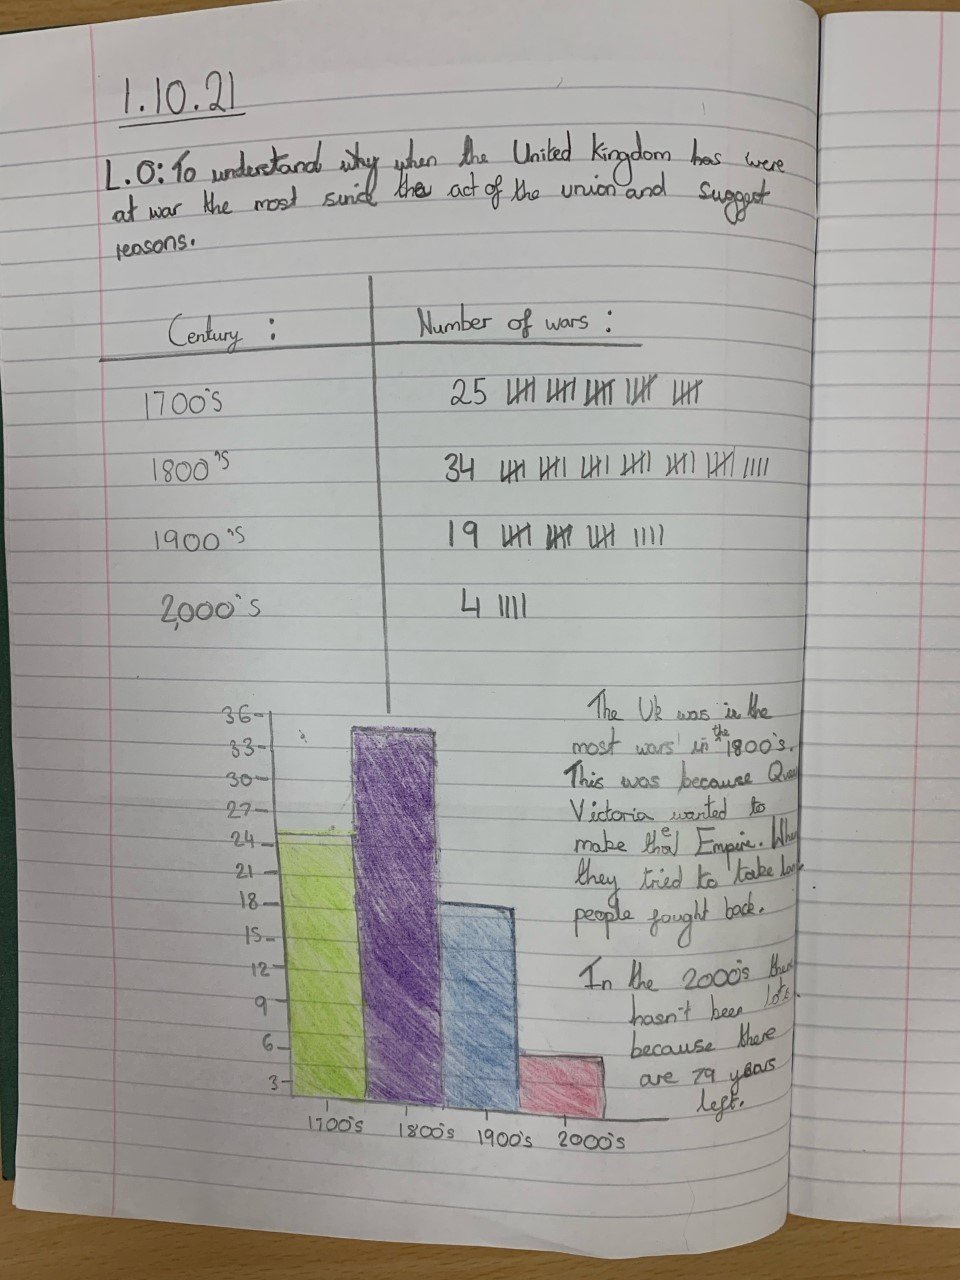 1.10.21
L.O: To understand why when the United Kingdom has were
at war the most since the act of the union and suggest
reasons.
Century : Number of wars :
1700's 25
1800's 34
1900's 19
2,000's 4
36
33
30
27
24
21
18
15
12
9
6
3
1700's 1800's 1900's 2000's
The Uk was in the
most wars in the 1800's.
This was because
Victoria wanted to
make the Empire.
they tried to take
people fought back.
In the 2000's
hasn't been lots
because there
are 79 years
left.